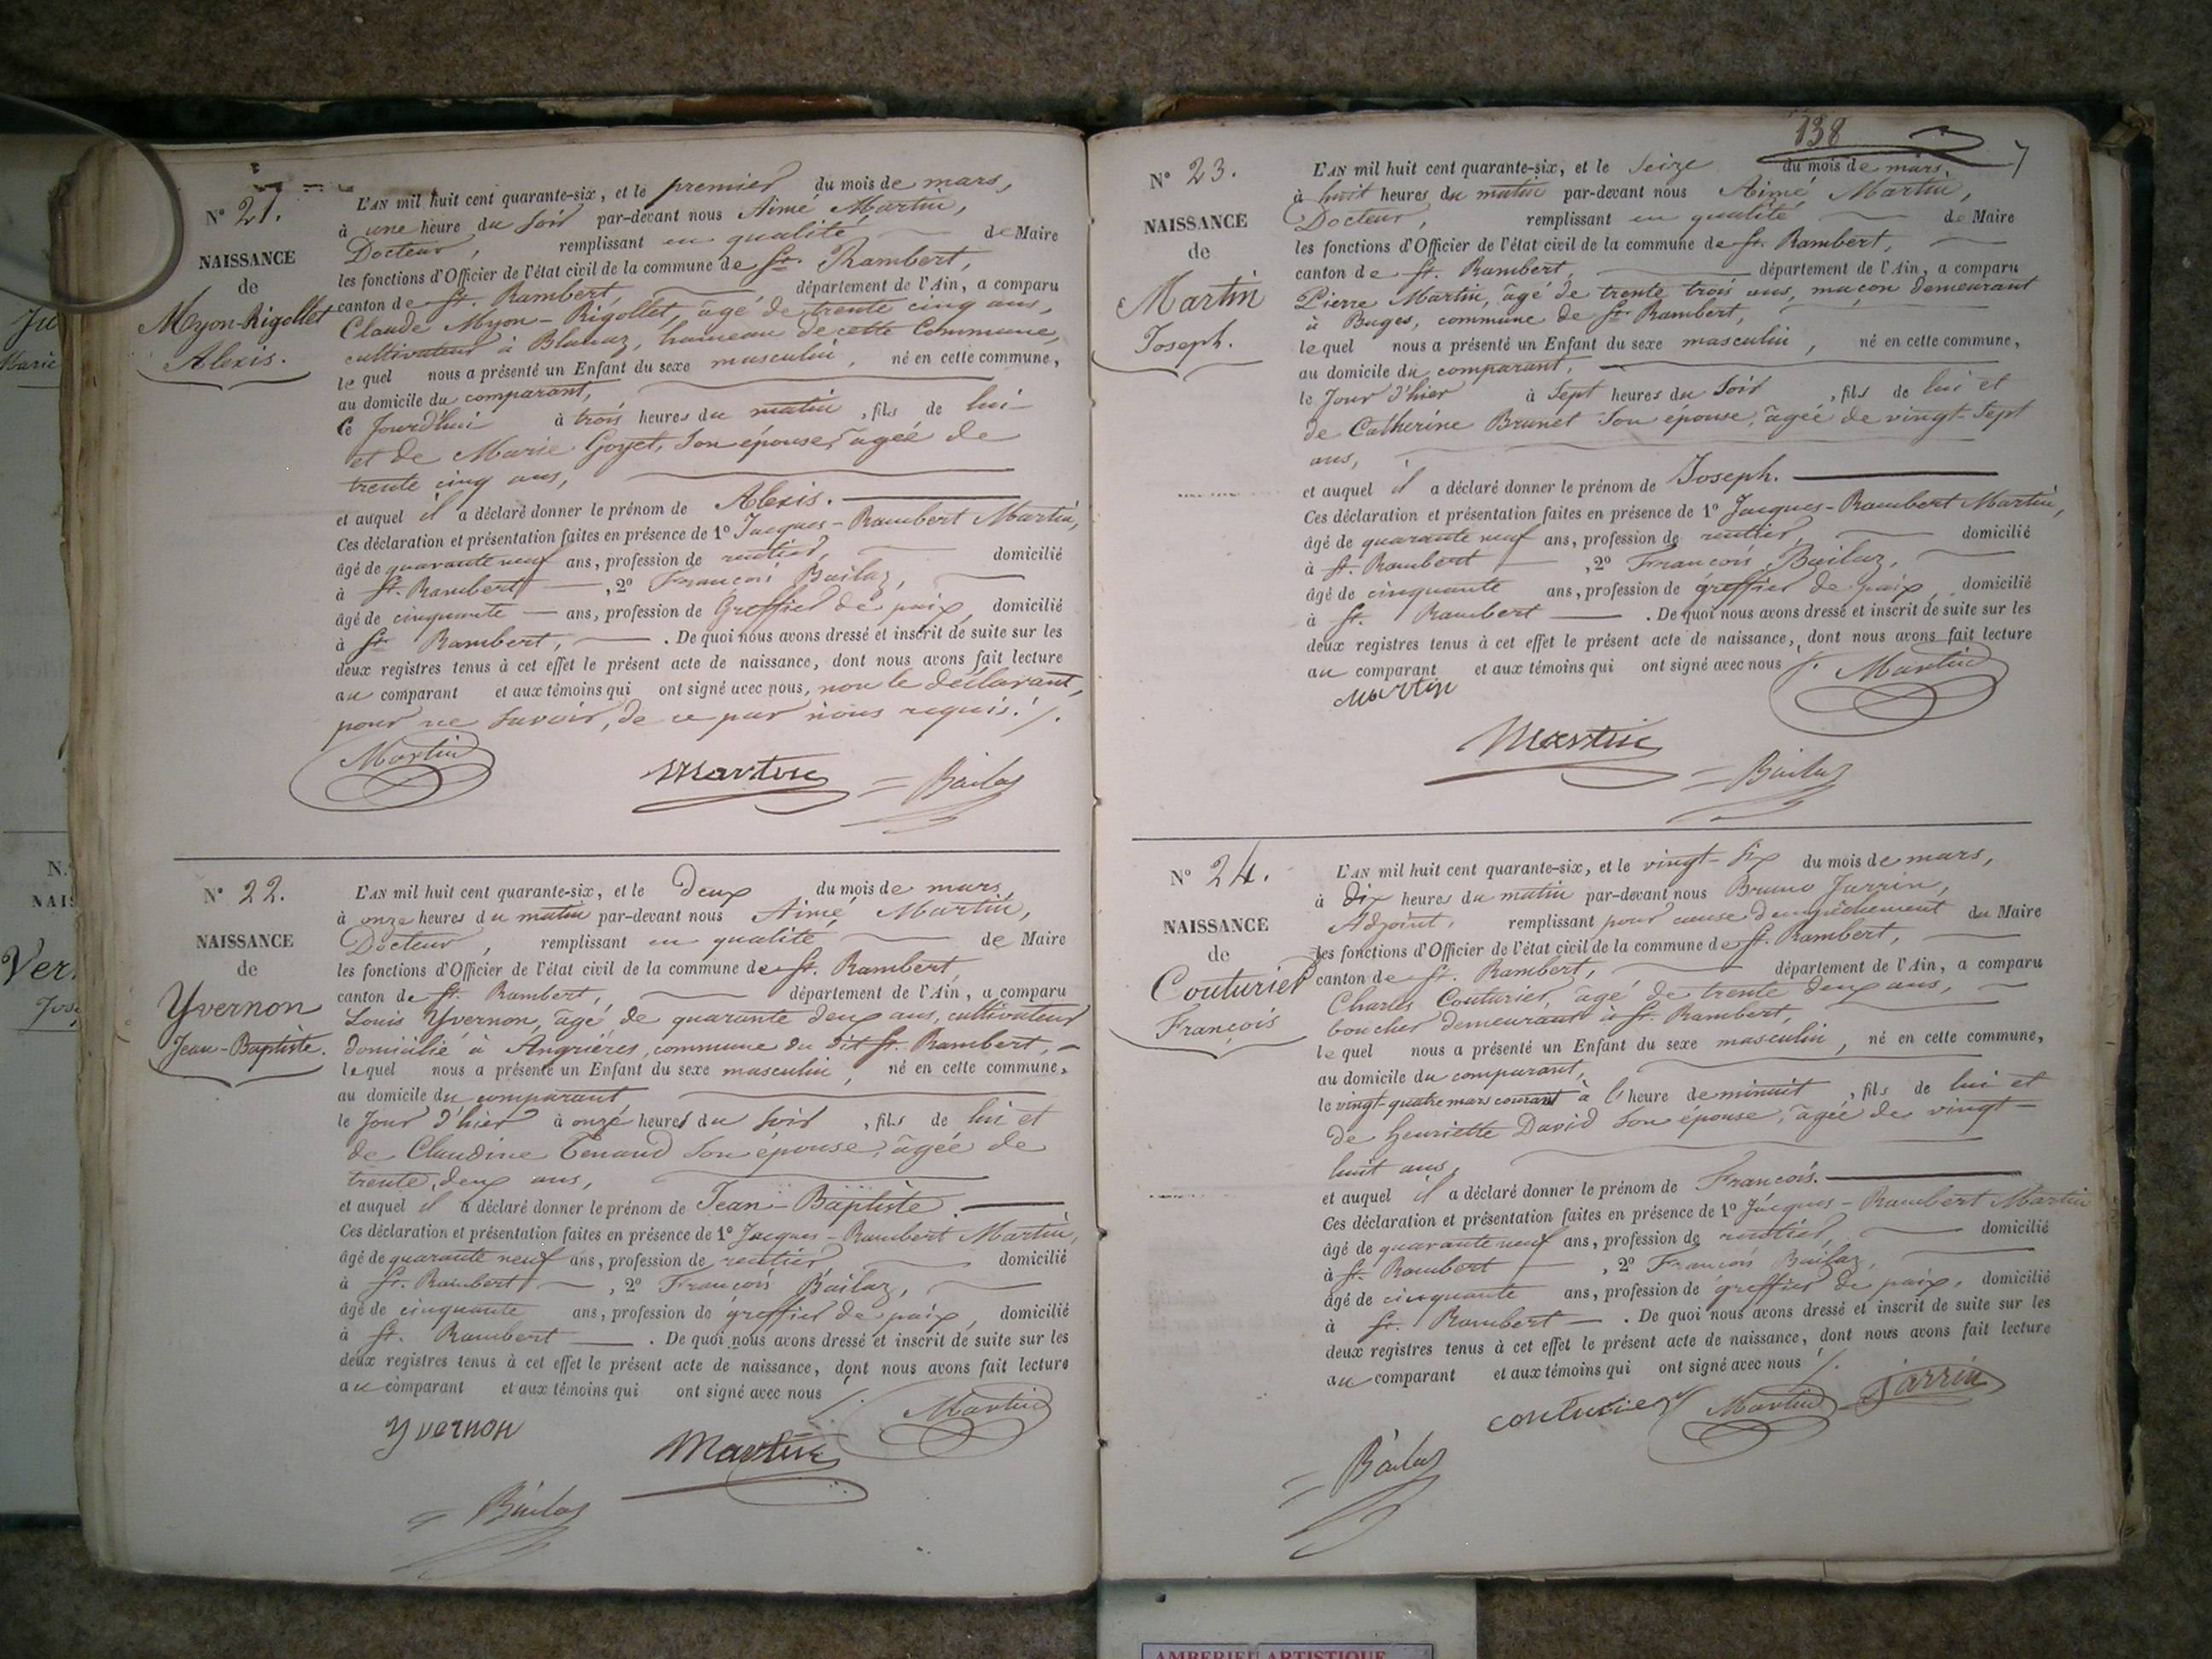 N° 21.
NAISSANCE
de
Myon-Rigollet
Alexis.
L'AN mil huit cent quarante-six, et le premier du mois de mars,
à une heure du soir par-devant nous Aimé Martin,
Docteur, remplissant en qualité de Maire
les fonctions d'Officier de l'état civil de la commune de St. Rambert,
canton de St. Rambert, département de l'Ain, a comparu
Claude Myon-Rigollet, âgé de trente cinq ans,
cultivateur à Blanaz, hameau de cette Commune,
lequel nous a présenté un Enfant du sexe masculin, né en cette commune,
au domicile du comparant,
Ce Jourd'hui à trois heures du matin, fils de lui
et de Marie Goyet, son épouse, âgée de
trente cinq ans,
et auquel il a déclaré donner le prénom de Alexis.
Ces déclaration et présentation faites en présence de 1° Jacques-Rambert Martin,
âgé de quarante neuf ans, profession de rentier, domicilié
à St. Rambert, 2° François Bailaz,
âgé de cinquante ans, profession de Greffier de paix, domicilié
à St. Rambert, . De quoi nous avons dressé et inscrit de suite sur les
deux registres tenus à cet effet le présent acte de naissance, dont nous avons fait lecture
au comparant et aux témoins qui ont signé avec nous, non le déclarant,
pour ne savoir, de ce par nous requis. /.
Martin Martin Bailaz
N° 22.
NAISSANCE
de
Yvernon
Jean-Baptiste.
L'AN mil huit cent quarante-six, et le deux du mois de mars,
à onze heures du matin par-devant nous Aimé Martin,
Docteur, remplissant en qualité de Maire
les fonctions d'Officier de l'état civil de la commune de St. Rambert,
canton de St. Rambert, département de l'Ain, a comparu
Louis Yvernon, âgé de quarante deux ans, cultivateur
domicilié à Angrières, commune du dit St. Rambert,
lequel nous a présenté un Enfant du sexe masculin, né en cette commune,
au domicile du comparant
le Jour d'hier à onze heures du soir, fils de lui et
de Claudine Tenand son épouse, âgée de
trente deux ans,
et auquel il a déclaré donner le prénom de Jean-Baptiste.
Ces déclaration et présentation faites en présence de 1° Jacques-Rambert Martin,
âgé de quarante neuf ans, profession de rentier domicilié
à St. Rambert, 2° François Bailaz,
âgé de cinquante ans, profession de greffier de paix, domicilié
à St. Rambert . De quoi nous avons dressé et inscrit de suite sur les
deux registres tenus à cet effet le présent acte de naissance, dont nous avons fait lecture
au comparant et aux témoins qui ont signé avec nous /.
Yvernon Martin Martin
Bailaz
138
7
N° 23.
NAISSANCE
de
Martin
Joseph.
L'AN mil huit cent quarante-six, et le seize du mois de mars,
à huit heures du matin par-devant nous Aimé Martin,
Docteur, remplissant en qualité de Maire
les fonctions d'Officier de l'état civil de la commune de St. Rambert,
canton de St. Rambert, département de l'Ain, a comparu
Pierre Martin, âgé de trente trois ans, maçon demeurant
à Buges, commune de St. Rambert,
lequel nous a présenté un Enfant du sexe masculin, né en cette commune,
au domicile du comparant,
le Jour d'hier à sept heures du soir, fils de lui et
de Catherine Brunet son épouse, âgée de vingt-sept
ans,
et auquel il a déclaré donner le prénom de Joseph.
Ces déclaration et présentation faites en présence de 1° Jacques-Rambert Martin,
âgé de quarante neuf ans, profession de rentier, domicilié
à St. Rambert, 2° François Bailaz,
âgé de cinquante ans, profession de greffier de paix, domicilié
à St. Rambert . De quoi nous avons dressé et inscrit de suite sur les
deux registres tenus à cet effet le présent acte de naissance, dont nous avons fait lecture
au comparant et aux témoins qui ont signé avec nous /. Martin
Martin
Martin Bailaz
N° 24.
NAISSANCE
de
Couturier
François
L'AN mil huit cent quarante-six, et le vingt-six du mois de mars,
à dix heures du matin par-devant nous Bruno Jarrin,
Adjoint, remplissant pour cause d'empêchement du Maire
les fonctions d'Officier de l'état civil de la commune de St. Rambert,
canton de St. Rambert, département de l'Ain, a comparu
Charles Couturier, âgé de trente deux ans,
boucher demeurant à St. Rambert,
lequel nous a présenté un Enfant du sexe masculin, né en cette commune,
au domicile du comparant,
le vingt-quatre mars courant à l'heure de minuit, fils de lui et
de Henriette David son épouse, âgée de vingt-
huit ans,
et auquel il a déclaré donner le prénom de François.
Ces déclaration et présentation faites en présence de 1° Jacques-Rambert Martin
âgé de quarante neuf ans, profession de rentier, domicilié
à St. Rambert, 2° François Bailaz,
âgé de cinquante ans, profession de greffier de paix, domicilié
à St. Rambert . De quoi nous avons dressé et inscrit de suite sur les
deux registres tenus à cet effet le présent acte de naissance, dont nous avons fait lecture
au comparant et aux témoins qui ont signé avec nous /.
Couturier Martin Jarrin
Bailaz
AMBERIEU ARTISTIQUE